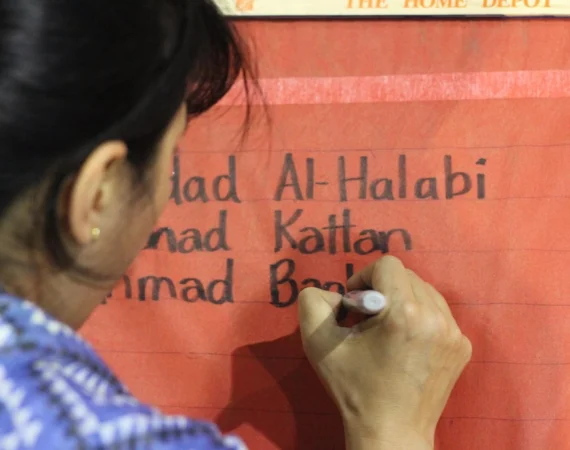 THE HOME DEPOT
dad Al-Halabi
mad Kattan
hmad Ba